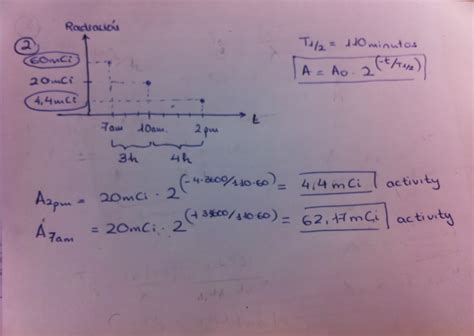 Radiación
2
60mCi
20mCi
4,4mCi
7am 10am 2pm t
3h 4h
T1/2 = 110minutos
A = A0 · 2^(-t/T1/2)
A2pm = 20mCi · 2^(-4·3600/110·60) = 4,4mCi activity
A7am = 20mCi · 2^(+3·3600/110·60) = 62,17mCi activity